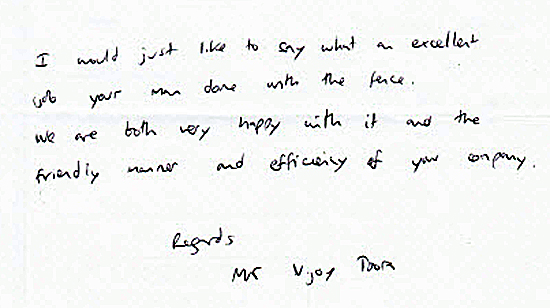 I would just like to say what an excellent
job your man done with the fence.
We are both very happy with it and the
friendly manner and efficiency of your company.
Regards
Mr Vijay Toora